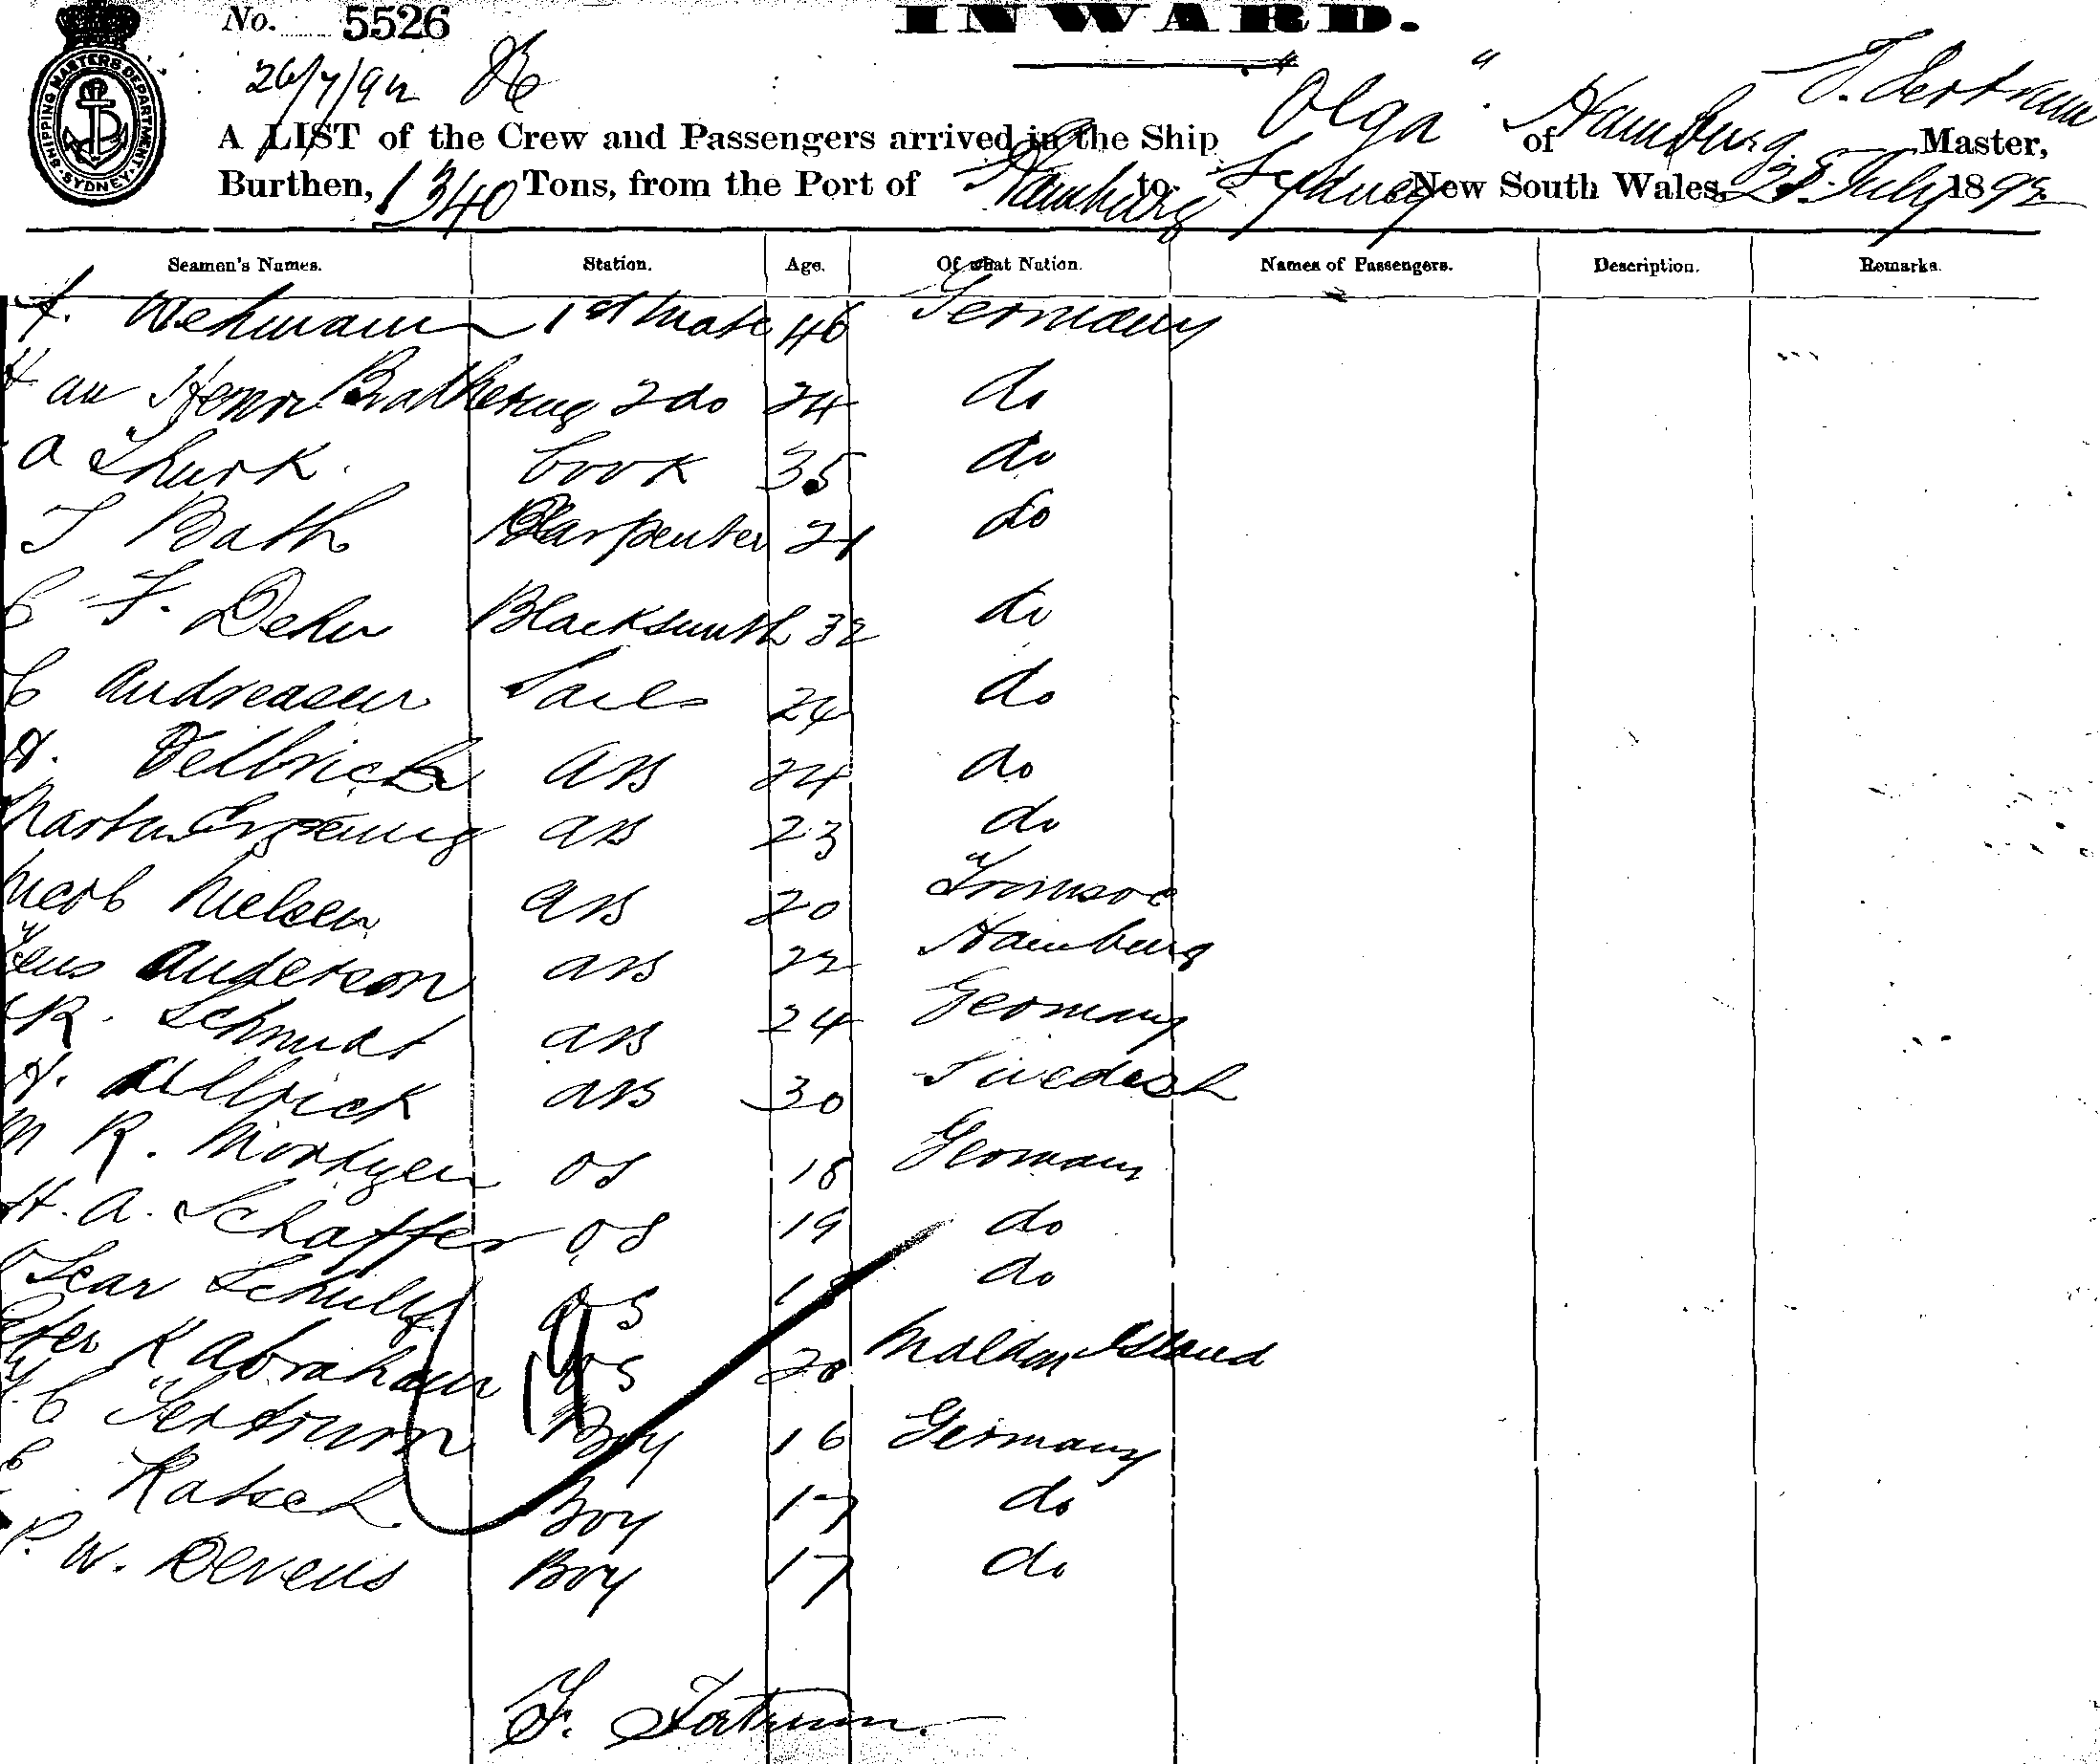 No. 5526 INWARD.
26/7/92
SHIPPING MASTERS DEPARTMENT SYDNEY
A LIST of the Crew and Passengers arrived in the Ship "Olga" of Hamburg Master,
Burthen, 1340 Tons, from the Port of Hamburg to Sydney New South Wales, July 1892
Seamen's Names. Station. Age. Of what Nation. Names of Passengers. Description. Remarks.
Wehmann 1st Mate 46 Germany
2 do 24 do
A Cook 35 do
J Bath Carpenter 21 do
C F. Dehn Blacksmith 32 do
C Andreasen Sails 24 do
H. Delbrick AB 24 do
AB 23 do
Nielsen AB 20 Tromsoe
Jens Anderson AB 22 Hamburg
R. Schmidt AB 24 Germany
H. AB 30 Swedish
M R. OS 18 German
H. A. Schaffer OS 19 do
Oscar Schultz OS 18 do
Peter K Abraham OS 20 Malden Island
C Boy 16 Germany
Katsch Boy 17 do
P. W. Devens Boy 17 do
19
F.